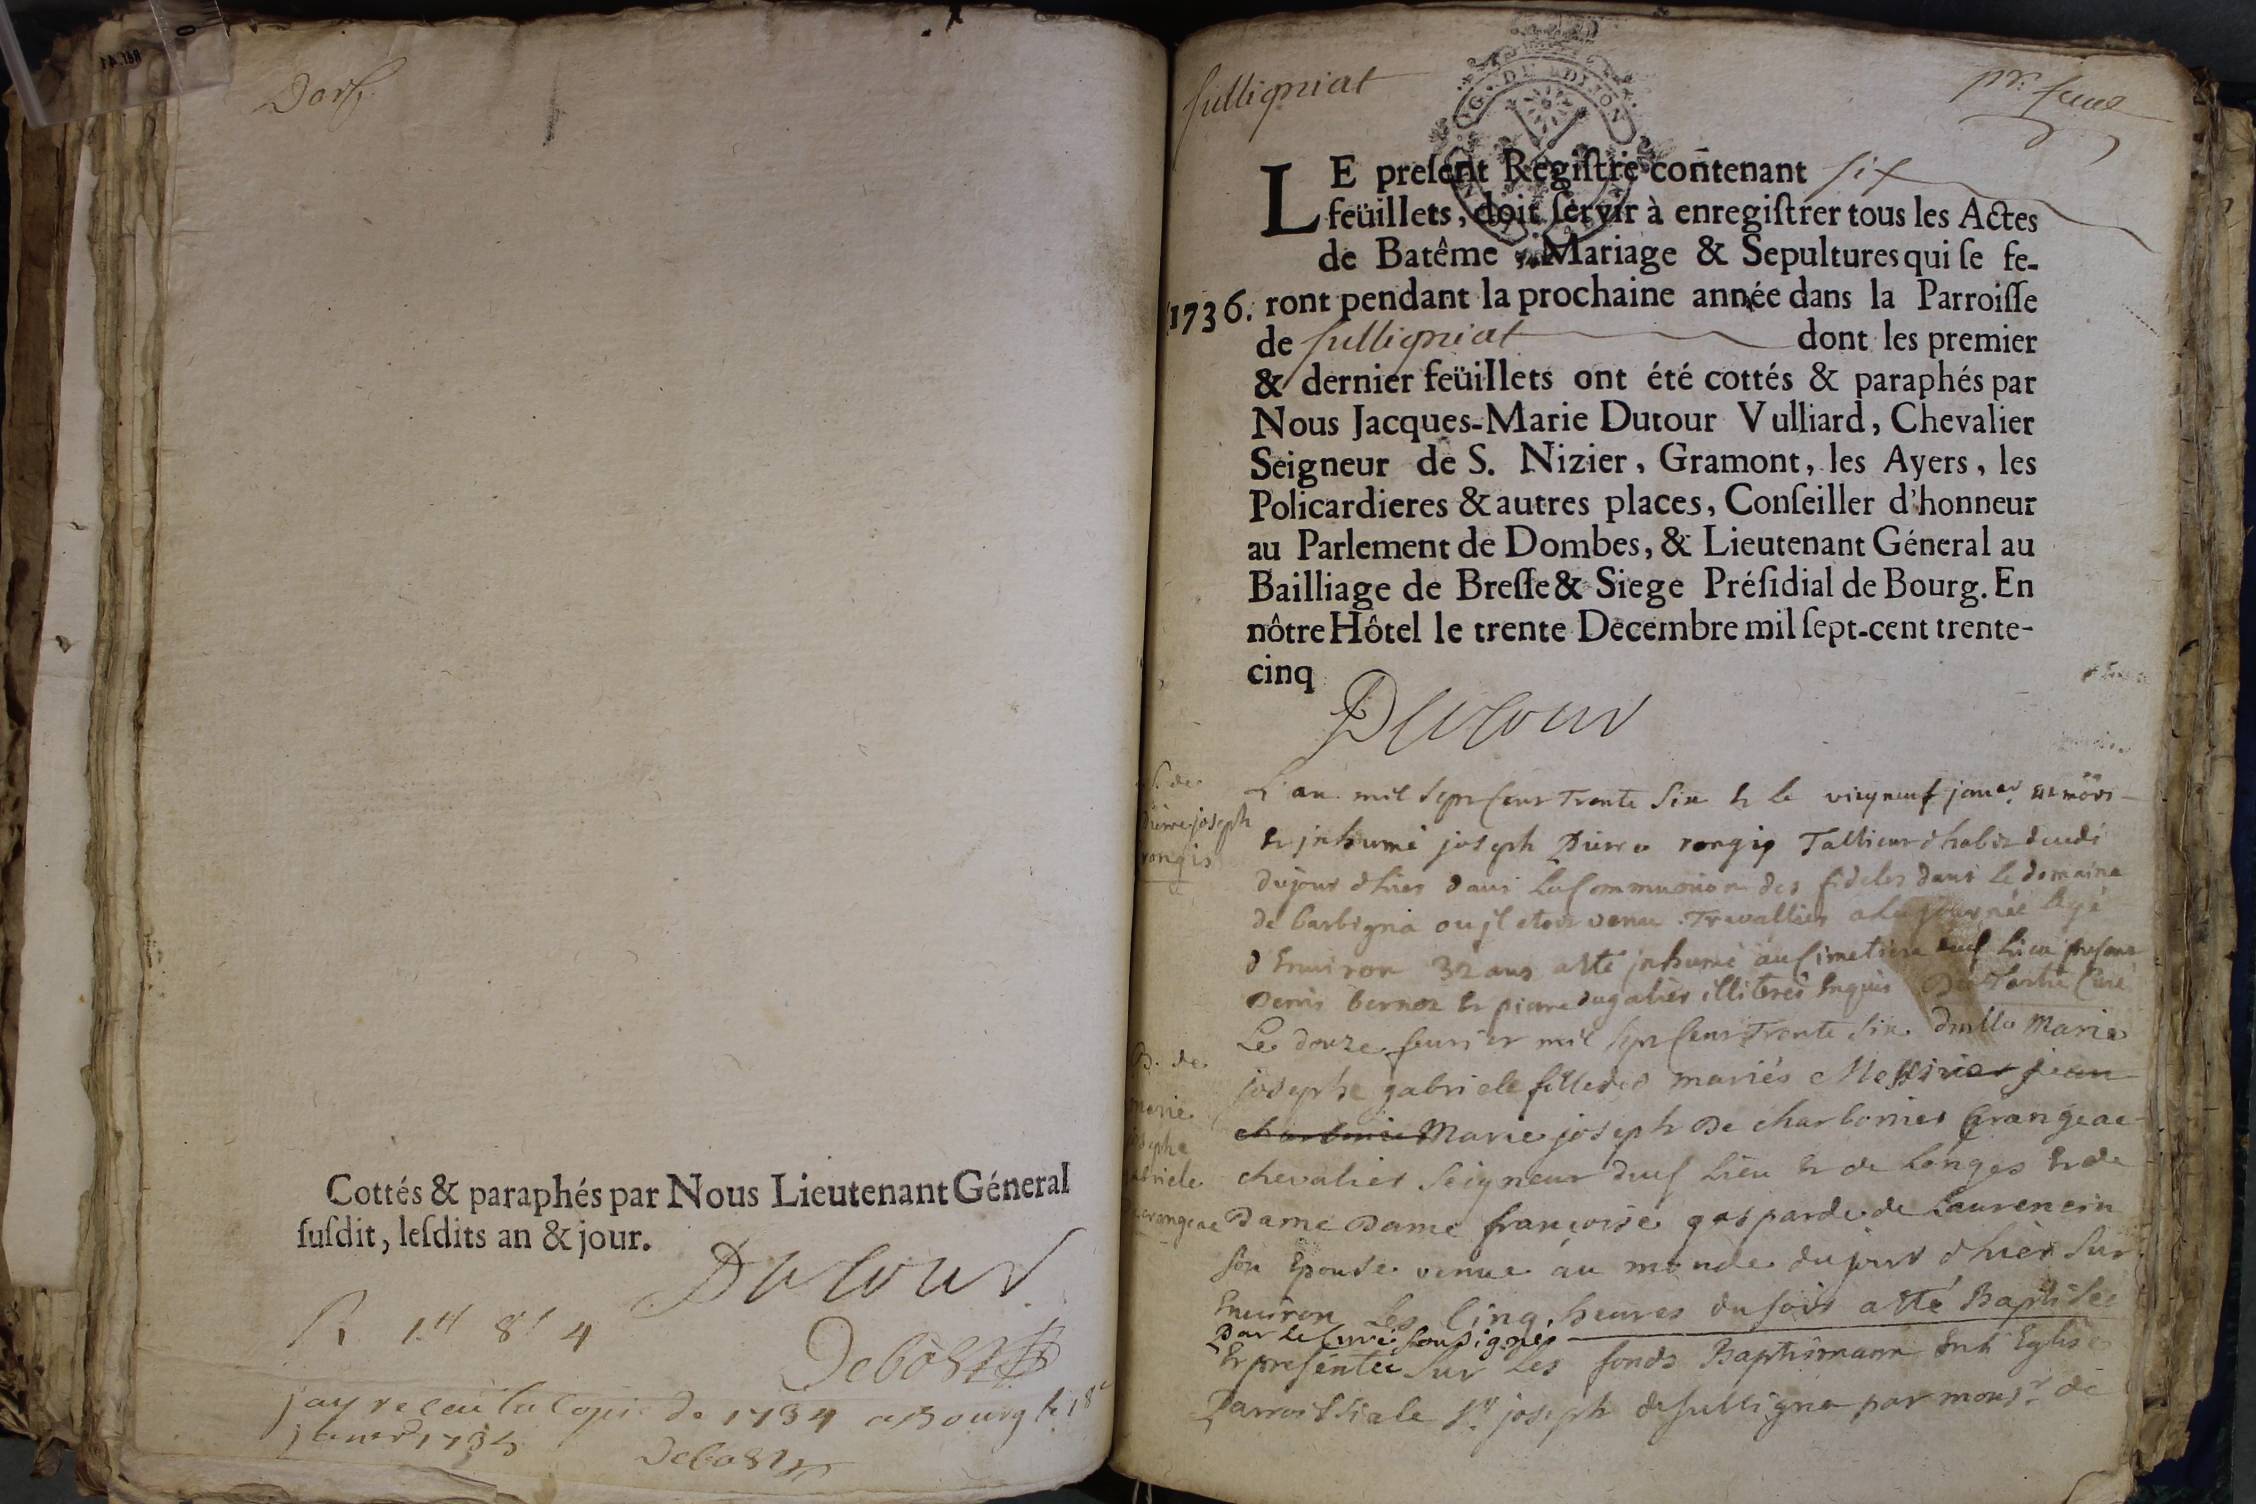 Cottés & paraphés par Nous Lieutenant Géneral
ſuſdit, leſdits an & jour.
Dutour
R 1ll 8s 4
Debost
jay receu la Copie de 1734 a Bourg le 18e
janer 1735
Debost
ſulligniat
pr. feuil
LE preſent Regiſtre conñtenant ſix
feüillets, doit ſervir à enregiſtrer tous les Actes
de Batême, Mariage & Sepultures qui ſe fe-
1736. ront pendant la prochaine année dans la Parroiſſe
de ſulligniat dont les premier
& dernier feüillets ont été cottés & paraphés par
Nous Jacques-Marie Dutour Vulliard, Chevalier
Seigneur de S. Nizier, Gramont, les Ayers, les
Policardieres & autres places, Conſeiller d'honneur
au Parlement de Dombes, & Lieutenant Géneral au
Bailliage de Breſſe & Siege Préſidial de Bourg. En
nôtre Hôtel le trente Decembre mil ſept-cent trente-
cinq
Dutour
S. de
pierre joseph
rongis
L'an mil sept cent Trente Six et le vingneuf janer est mort
et inhumé joseph Pierre rongis Tallieur d'habit
du jour d'hier dans la Communion des fideles dans le domaine
de barbigna ou il etoit venu Travallier a la journée agé
d'Environ 32 ans a êté inhumé au Cimetiere dud Lieu presans
Denis bernoz et piere dugalier illiterés Enquis Curé
Le douze feurier mil sept cent Trente Six dmlle Marie
josephe gabriele fille des mariés Messire jean
charbonier Marie joseph De charbonier Crangeac
chevalier Seigneur dud Lieu et de Longes et de
Dame Dame françoise gasparde de Laurencin
son Epouse venue au monde du jour d'hier sur
Environ Les Cinq heures du soir a êté Baptisée
par le Curé sousigné
Et presentée sur Les fonds Baptismaux En l'Eglise
Parroissiale St joseph de sulligna par monsr de
B. de
marie
josephe
gabriele
crangeac